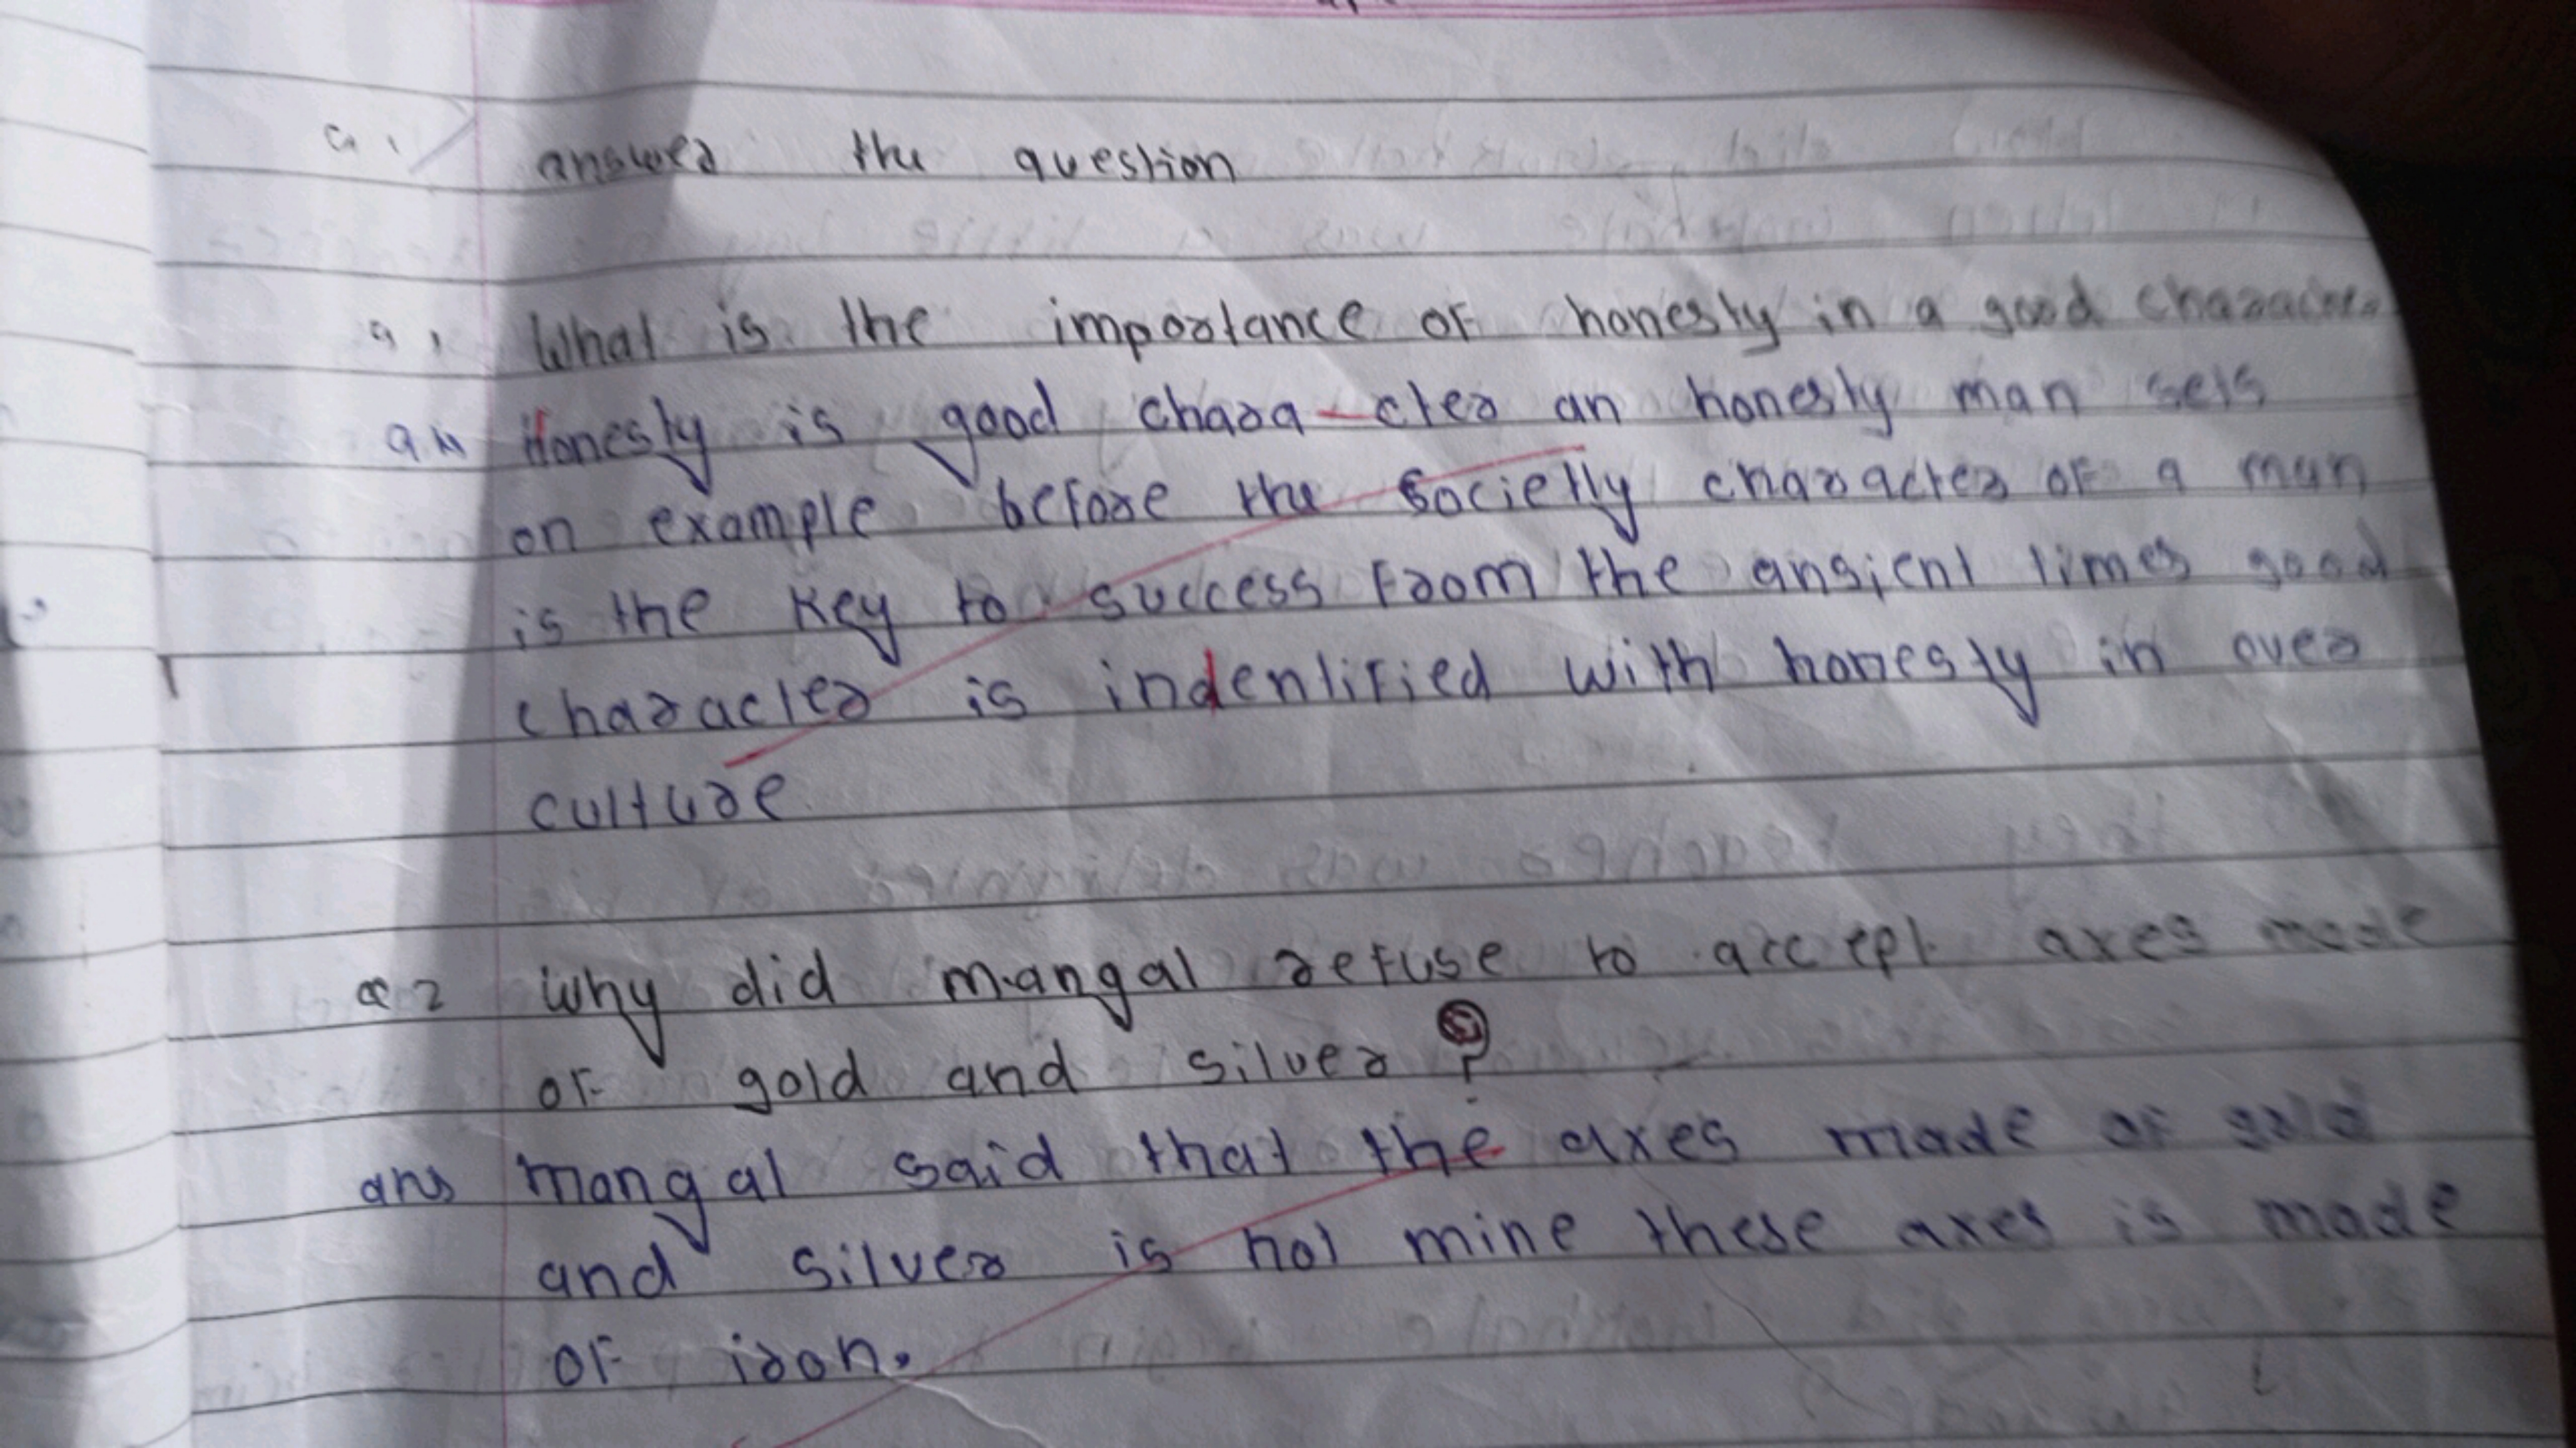 Q.1 answer the question
Q1 What is the importance of honesty in a good character
ans Honesty is good chara-cter an honesty man sets
on example before the societly character of a man
is the key to success from the ansient times good
character is indentified with honesty in over
culture
Q2 Why did mangal refuse to accept axes made
of gold and silver ?
ans mangal said that the axes made of gold
and silver is not mine these axes is made
of iron.